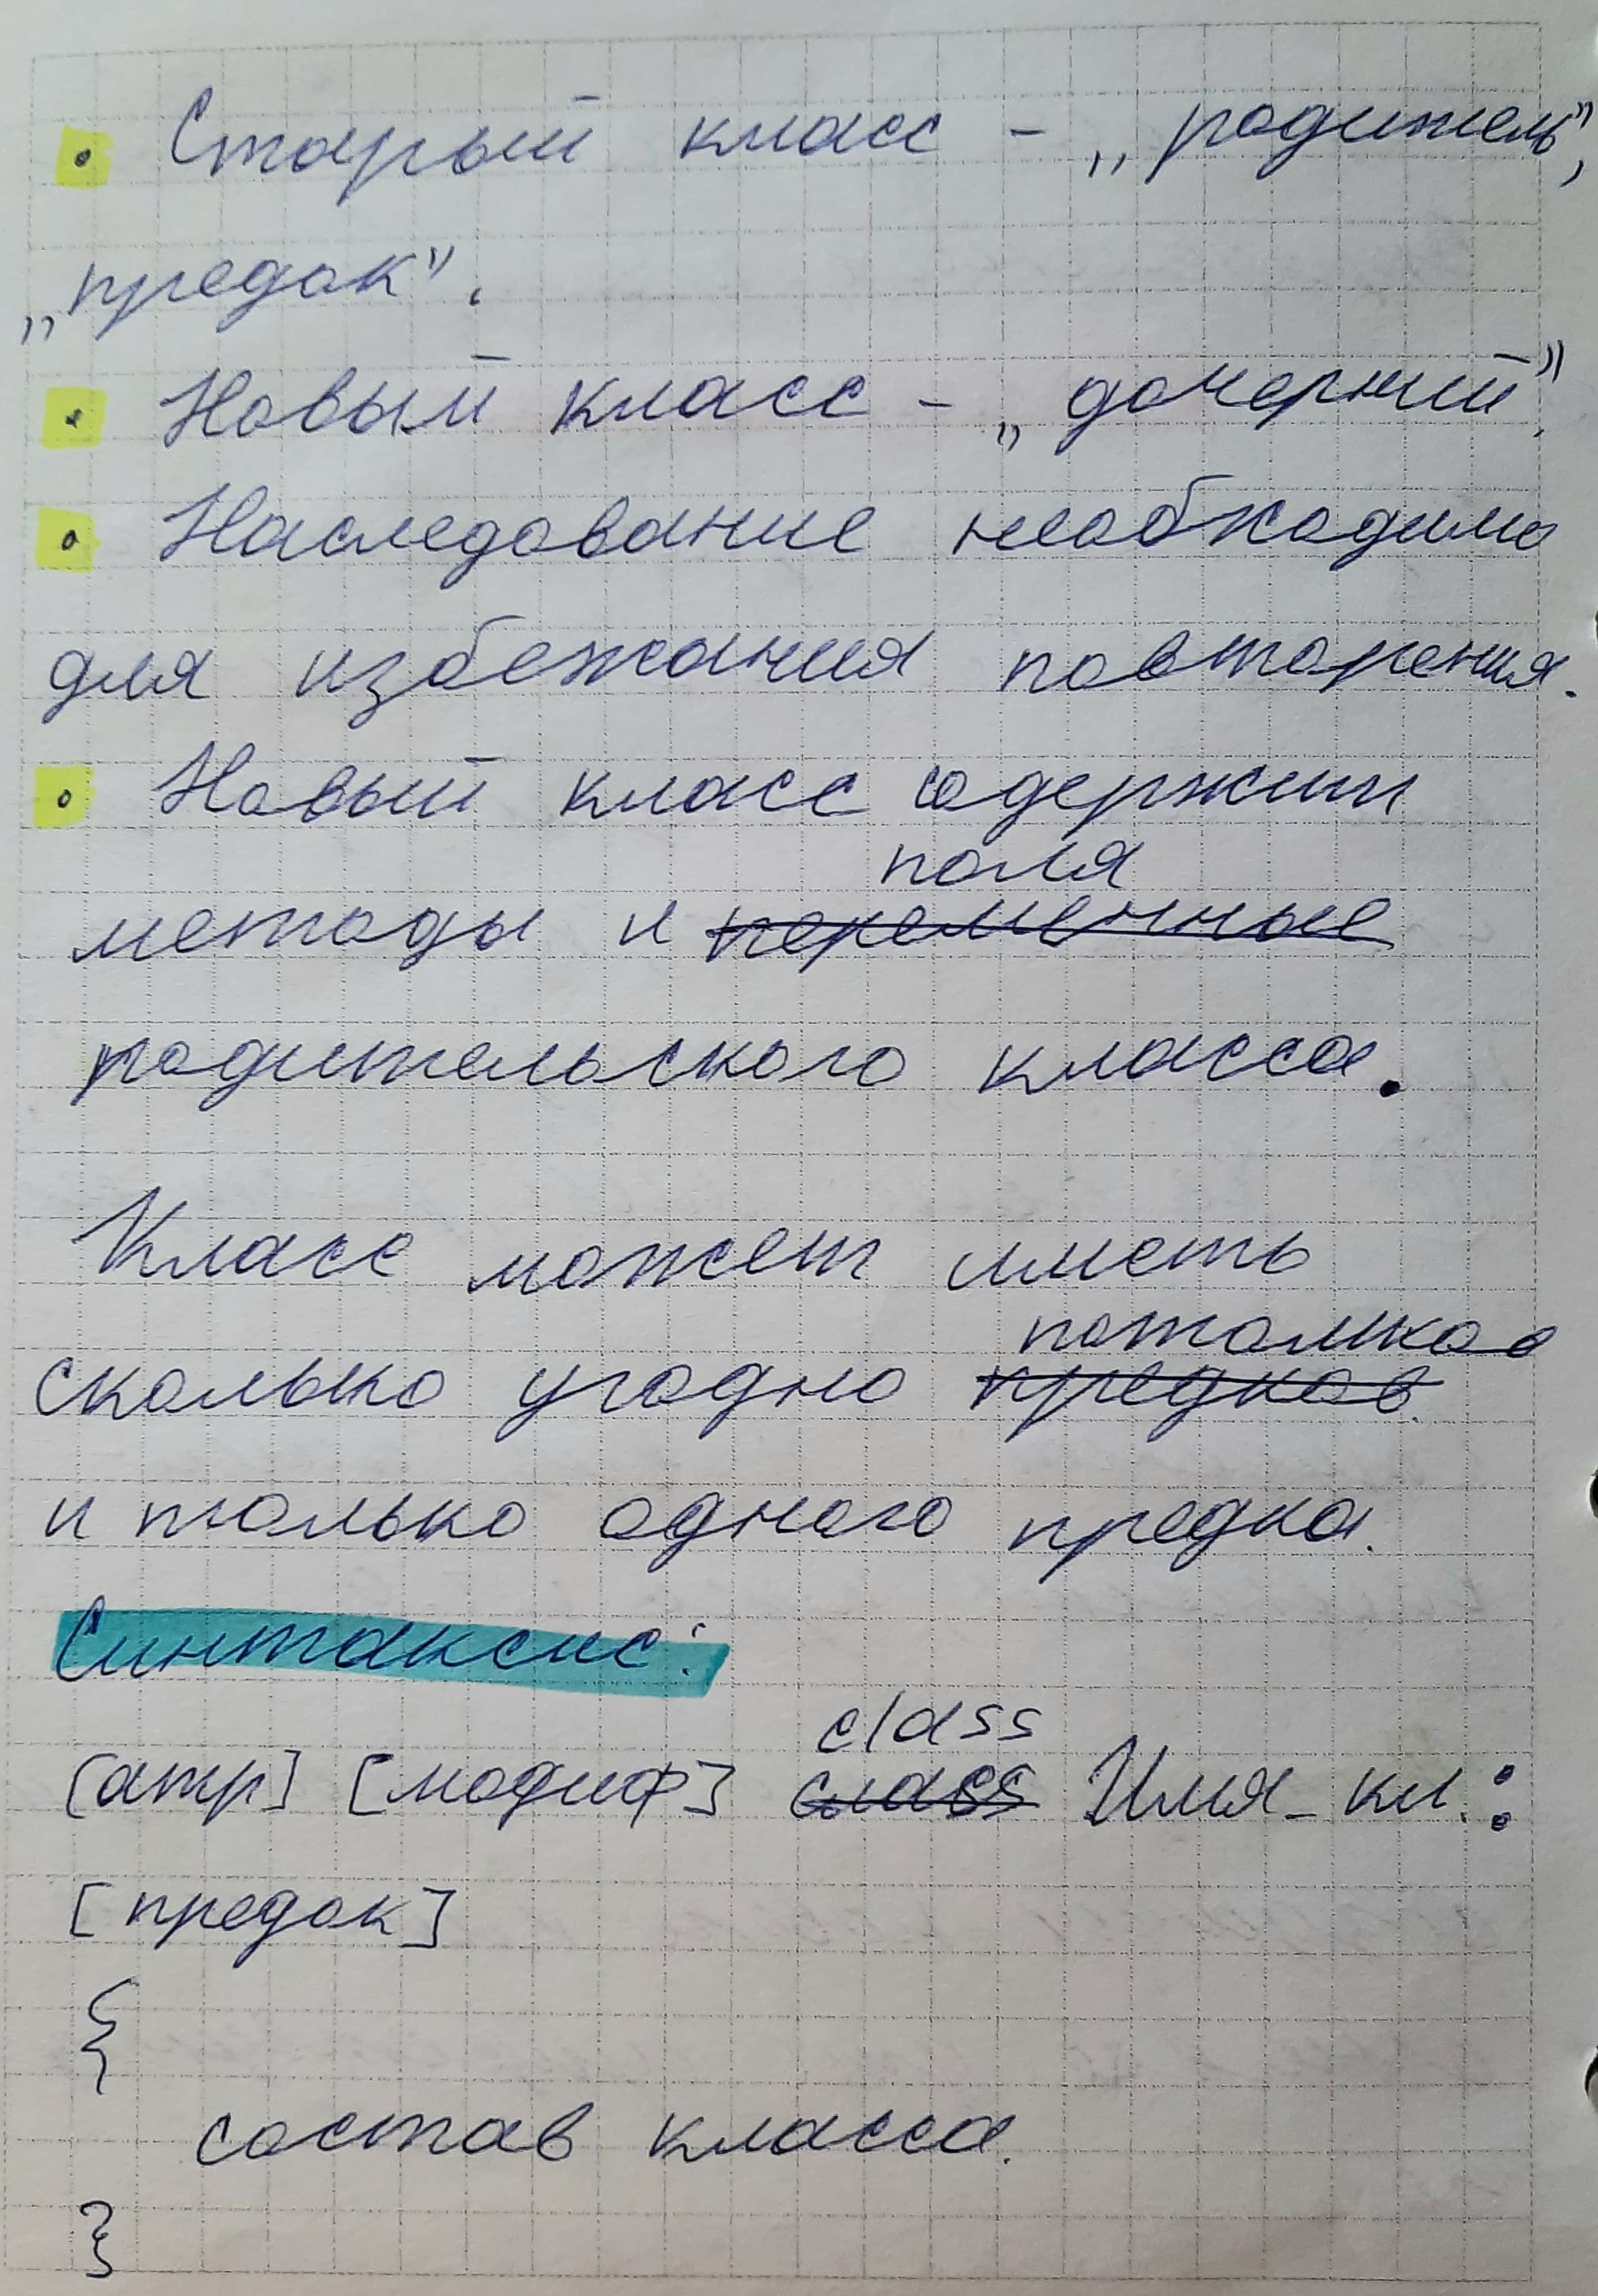 • Старый класс – „родитель”,
„предок”.
• Новый класс – „дочерний”.
• Наследование необходимо
для избежания повторения.
• Новый класс содержит
поля
методы и переменные
родительского класса.
Класс может иметь
потомков
сколько угодно предков
и только одного предка.
Синтаксис:
class
[атр] [модиф] class Имя_кл.:
[предок]
{
состав класса.
}